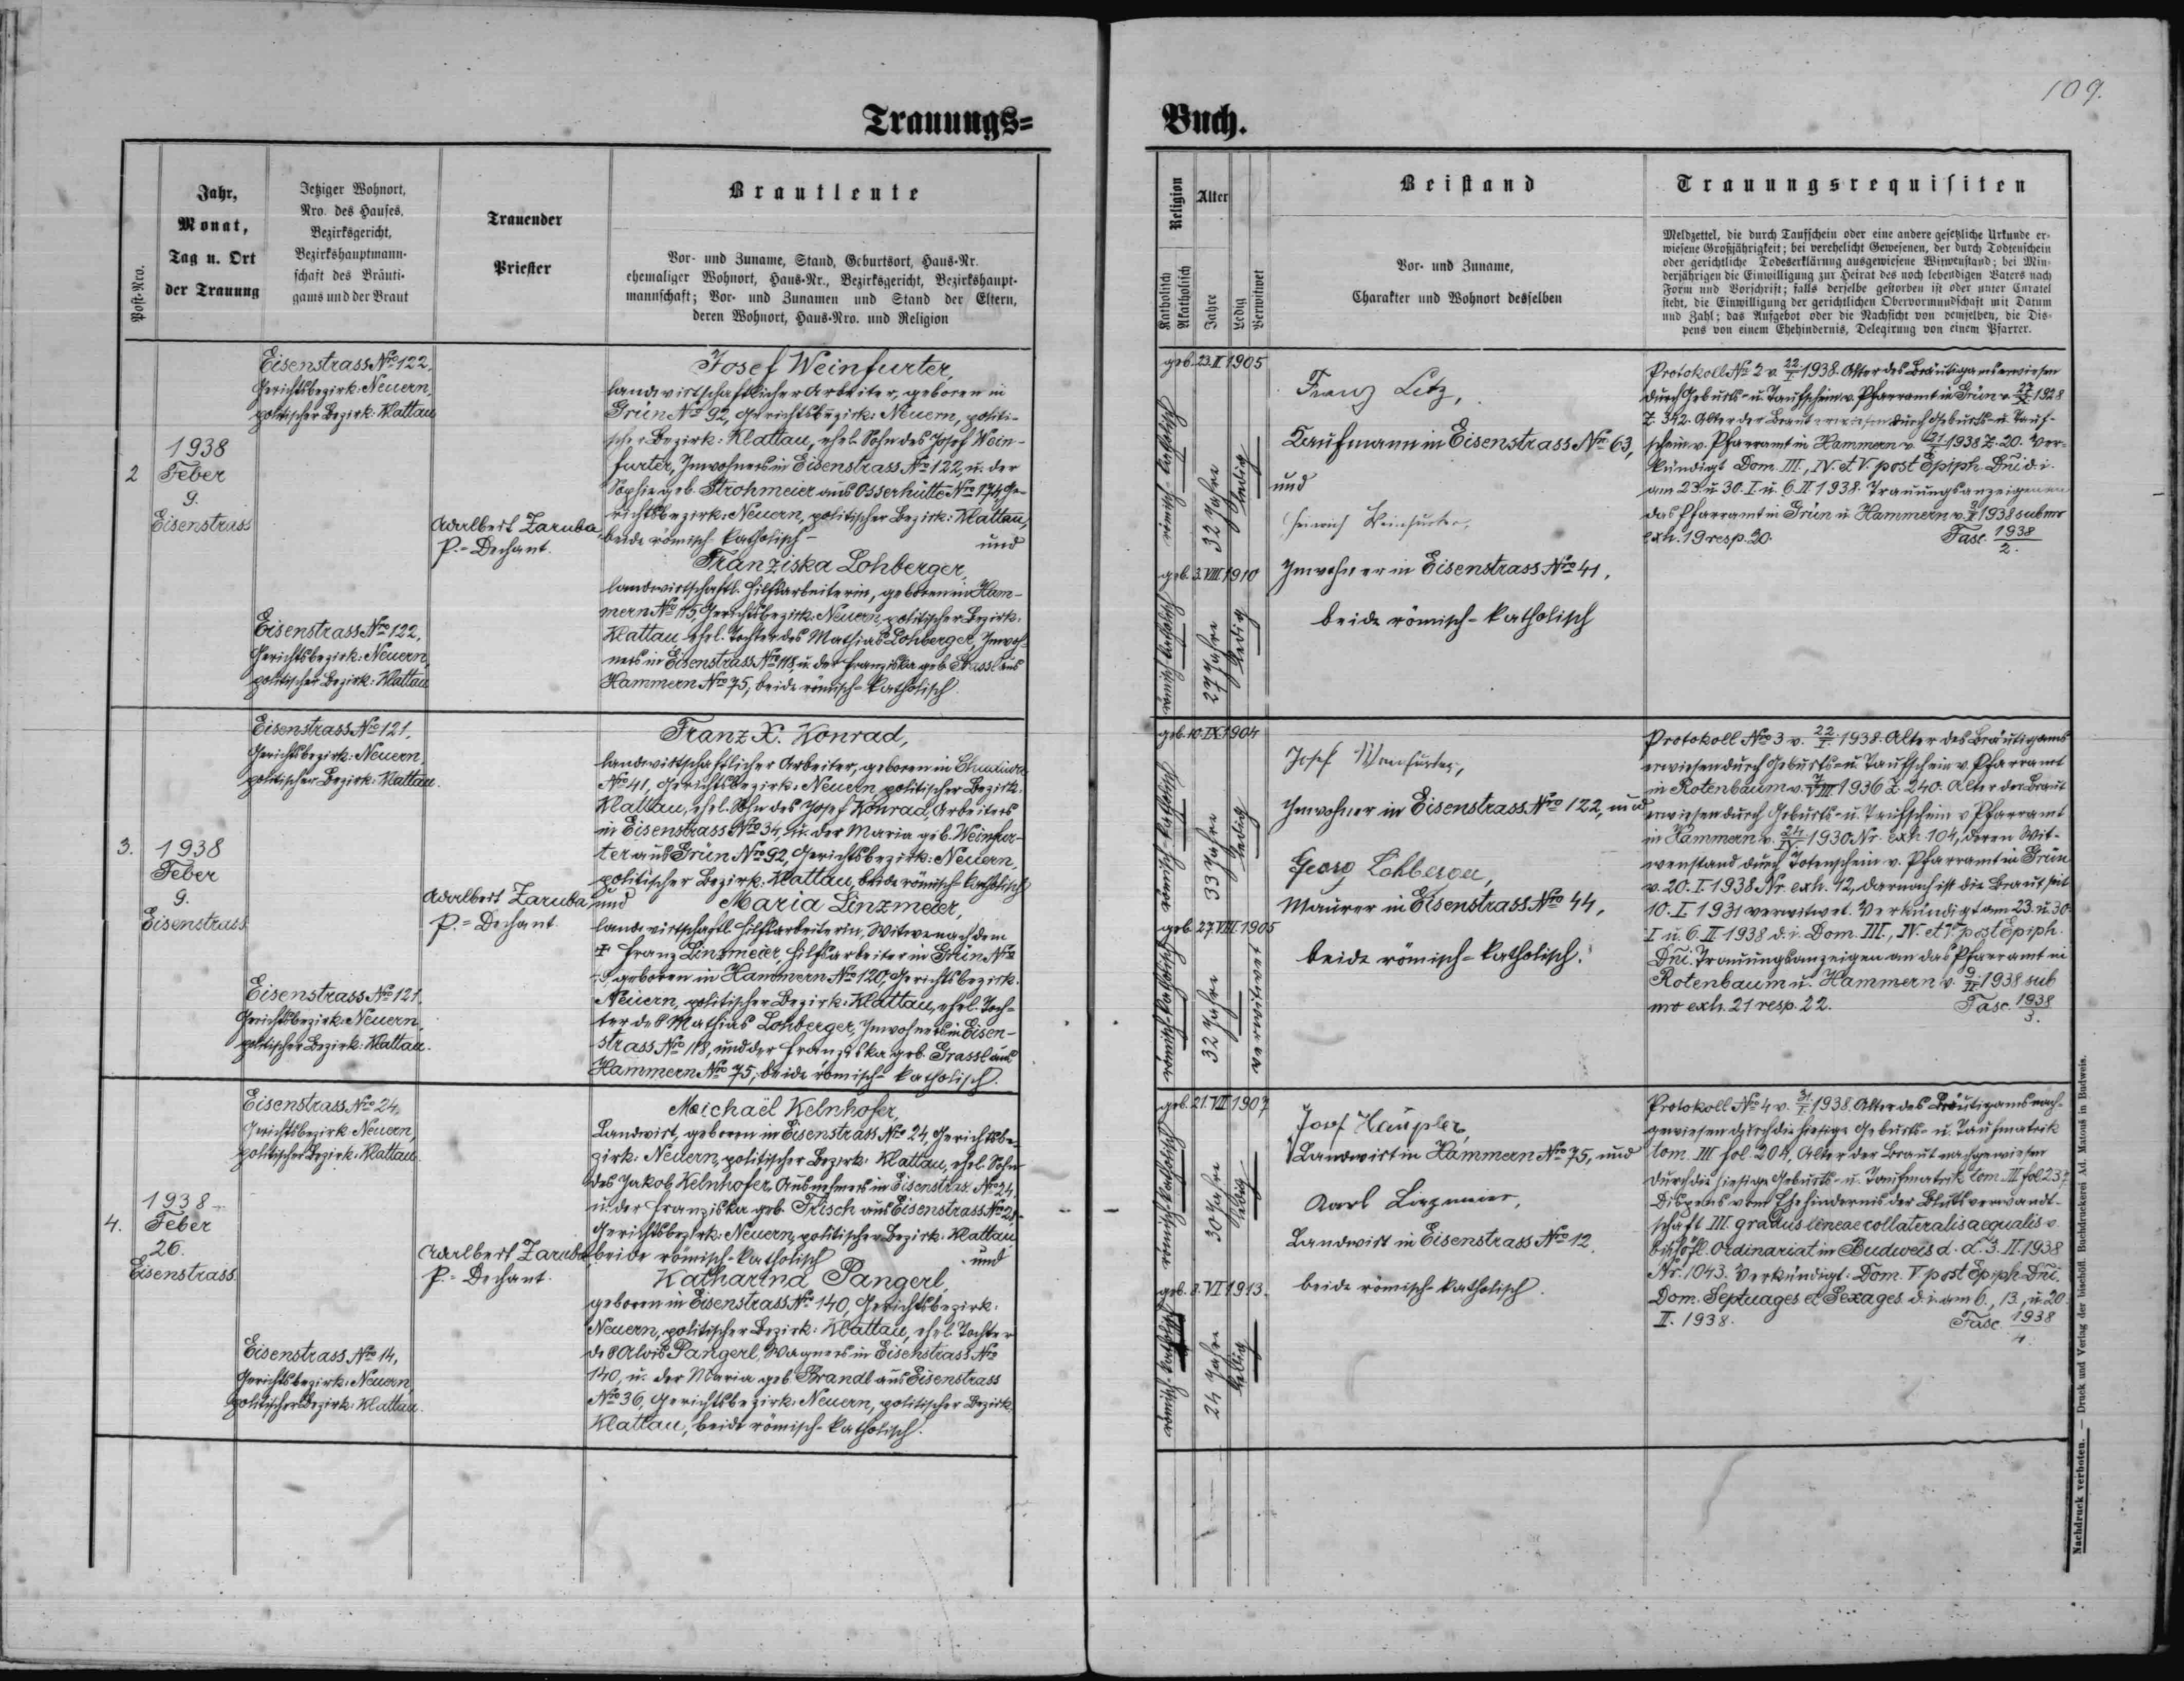 109.
Trauungs=
Buch.
Post-Nro.
Jahr,
Monat,
Tag u. Ort
der Trauung
Jetziger Wohnort,
Nro. des Hauses,
Bezirksgericht,
Bezirkshauptmann-
schaft des Bräuti-
gams und der Braut
Trauender
Priester
Brautleute
Vor- und Zuname, Stand, Geburtsort, Haus-Nr.
ehemaliger Wohnort, Haus-Nr., Bezirksgericht, Bezirkshaupt-
mannschaft; Vor- und Zunamen und Stand der Eltern,
deren Wohnort, Haus-Nro. und Religion
Religion
Katholisch
Akatholisch
Alter
Jahre
Ledig
Verwitwet
Beistand
Vor- und Zuname,
Charakter und Wohnort desselben
Trauungsrequisiten
Meldzettel, die durch Taufschein oder eine andere gesetzliche Urkunde er-
wiesene Großjährigkeit; bei verehelicht Gewesenen, der durch Todtenschein
oder gerichtliche Todeserklärung ausgewiesene Witwenstand; bei Min-
derjährigen die Einwilligung zur Heirat des noch lebendigen Vaters nach
Form und Vorschrift; falls derselbe gestorben ist oder unter Curatel
steht, die Einwilligung der gerichtlichen Obervormundschaft mit Datum
und Zahl; das Aufgebot oder die Nachsicht von demselben, die Dis-
pens von einem Ehehindernis, Delegirung von einem Pfarrer.
2
1938
Feber
9.
Eisenstrass
Eisenstrass Nro 122,
Gerichtsbezirk: Neuern,
politischer Bezirk: Klattau
Eisenstrass Nro 122,
Gerichtsbezirk: Neuern,
politischer Bezirk: Klattau
Adalbert Zaruba,
P.=Dechant.
Josef Weinfurter,
landwirtschaftlicher Arbeiter, geboren in
Grün Nro 92, Gerichtsbezirk: Neuern, politi-
scher Bezirk: Klattau, ehel. Sohn des Josef Wein-
furter, Inwohners in Eisenstrass Nro 122, u. der
Sophie geb. Strohmeier aus Osserhütte Nro 174, Ge-
richtsbezirk: Neuern, politischer Bezirk: Klattau,
beide römisch katholisch - und
Franziska Lohberger,
landwirtschaftl. Hilfsarbeiterin, geboren in Ham-
mern Nro 115, Gerichtsbezirk: Neuern, politischer Bezirk:
Klattau, ehel. Tochter des Mathias Lohberger, Inwoh-
ners in Eisenstrass Nro 118, u. der Franziska geb. Grassl aus
Hammern Nro 75, beide römisch-katholisch.
geb. 23. II 1905
römisch-katholisch
32 Jahre
ledig
geb. 3. VIII 1910
römisch-katholisch
27 Jahre
ledig
Franz Letz,
Kaufmann in Eisenstrass Nro 63,
und
Heinrich Weinfurter,
Inwohner in Eisenstrass Nro 41,
beide römisch-katholisch
Protokoll Nro 2 v. 22/I 1938. Alter des Bräutigams erwiesen
durch Geburts- u. Taufschein v. Pfarramt in Grün v. 27/X 1928
Z. 342. Alter der Braut erwiesen durch Geburts- u. Tauf-
schein v. Pfarramt in Hammern v. 21/I 1938 Z. 20. Ver-
kündigt Dom. III., IV. et V. post Epiph. Dni d. i.
am 23. u. 30. I. u. 6. II 1938. Trauungsanzeigen an
das Pfarramt in Grün u. Hammern v. 9/II 1938 sub nro
exh. 19 resp. 20. Fasc. 1938/2.
3.
1938
Feber
9.
Eisenstrass
Eisenstrass Nro 121,
Gerichtsbezirk: Neuern,
politischer Bezirk: Klattau.
Eisenstrass Nro 121
Gerichtsbezirk: Neuern,
politischer Bezirk: Klattau.
Adalbert Zaruba,
P.=Dechant.
Franz X. Konrad,
landwirtschaftlicher Arbeiter, geboren in Chudiwa
Nro 41, Gerichtsbezirk: Neuern, politischer Bezirk:
Klattau, ehel. Sohn des Josef Konrad, Arbeiters
in Eisenstrass Nro 34, u. der Maria geb. Weinfur-
ter aus Grün Nro 92, Gerichtsbezirk: Neuern,
politischer Bezirk: Klattau, beide römisch-katholisch
und Maria Linzmeier,
landwirtschaftl. Hilfsarbeiterin, Witwe nach dem
† Franz Linzmeier, Hilfsarbeiter in Grün Nro
geboren in Hammern Nro 120, Gerichtsbezirk:
Neuern, politischer Bezirk: Klattau, ehel. Toch-
ter des Mathias Lohberger, Inwohners in Eisen-
strass Nro 118, und der Franziska geb. Grassl aus
Hammern Nro 75, beide römisch-katholisch.
geb. 10. IX 1904
römisch-katholisch
33 Jahre
ledig
geb. 27. VIII 1905
römisch-katholisch
32 Jahre
verwitwet
Josef Weinfurter,
Inwohner in Eisenstrass Nro 122, und
Georg Lohberger,
Maurer in Eisenstrass Nro 44,
beide römisch-katholisch.
Protokoll Nro 3 v. 22/I. 1938. Alter des Bräutigams
erwiesen durch Geburts- u. Taufschein v. Pfarramt
in Rotenbaum v. 7/VIII 1936 Z. 240. Alter der Braut
erwiesen durch Geburts- u. Taufschein v. Pfarramt
in Hammern v. 24/IV 1930 Nr. exh. 104, deren Wit-
wenstand durch Totenschein v. Pfarramt in Grün
v. 20. I. 1938 Nr. exh. 12, darnach ist die Braut seit
10. I 1931 verwitwet. Verkündigt am 23. u. 30.
I u. 6. II 1938 d. i. Dom. III., IV. et V. post Epiph.
Dni. Trauungsanzeigen an das Pfarramt in
Rotenbaum u. Hammern v. 9/II 1938 sub
nro exh. 21 resp. 22. Fasc. 1938/3.
4.
1938
Feber
26.
Eisenstrass
Eisenstrass Nro 24,
Gerichtsbezirk: Neuern,
politischer Bezirk: Klattau
Eisenstrass Nro 14,
Gerichtsbezirk: Neuern,
politischer Bezirk: Klattau.
Adalbert Zaruba
P.=Dechant.
Michaël Kelnhofer,
Landwirt, geboren in Eisenstrass Nro 24, Gerichtsbe-
zirk: Neuern, politischer Bezirk: Klattau, ehel. Sohn
des Jakob Kelnhofer, Ausnehmers in Eisenstrass Nro 24
u. der Franziska geb. Frisch aus Eisenstrass Nro 28,
Gerichtsbezirk: Neuern, politischer Bezirk: Klattau
beide römisch-katholisch und
Katharina Pangerl,
geboren in Eisenstrass Nro 140, Gerichtsbezirk:
Neuern, politischer Bezirk: Klattau, ehel. Tochter
des Alois Pangerl, Wagners in Eisenstrass Nro
140, u. der Maria geb. Brandl aus Eisenstrass
Nro 36, Gerichtsbezirk: Neuern, politischer Bezirk:
Klattau, beide römisch-katholisch.
geb. 21. VII 1907
römisch-katholisch
30 Jahre
ledig
geb. 8. VI 1913.
römisch-katholisch
24 Jahre
ledig
Josef Haupler,
Landwirt in Hammern Nro 75, und
Karl Linzmeier,
Landwirt in Eisenstrass Nro 12.
beide römisch-katholisch.
Protokoll Nro 4 v. 31/I. 1938. Alter des Bräutigams nach-
gewiesen durch die hiesige Geburts- u. Taufmatrik
tom. III fol. 204, Alter der Braut nachgewiesen
durch die hiesige Geburts- u. Taufmatrik tom. III fol 237
Dispens vom Ehehindernis der Blutsverwandt-
schaft III. gradus lineae collateralis aequalis v.
bischöfl. Ordinariat in Budweis d. d. 3. II. 1938
Nr. 1043. Verkündigt: Dom. V post Epiph. Dni.
Dom. Septuages. et Sexages. d. i. am 6., 13., u. 20.
II. 1938. Fasc. 1938/4.
Nachdruck verboten. — Druck und Verlag der bischöfl. Buchdruckerei Ad. Matouš in Budweis.